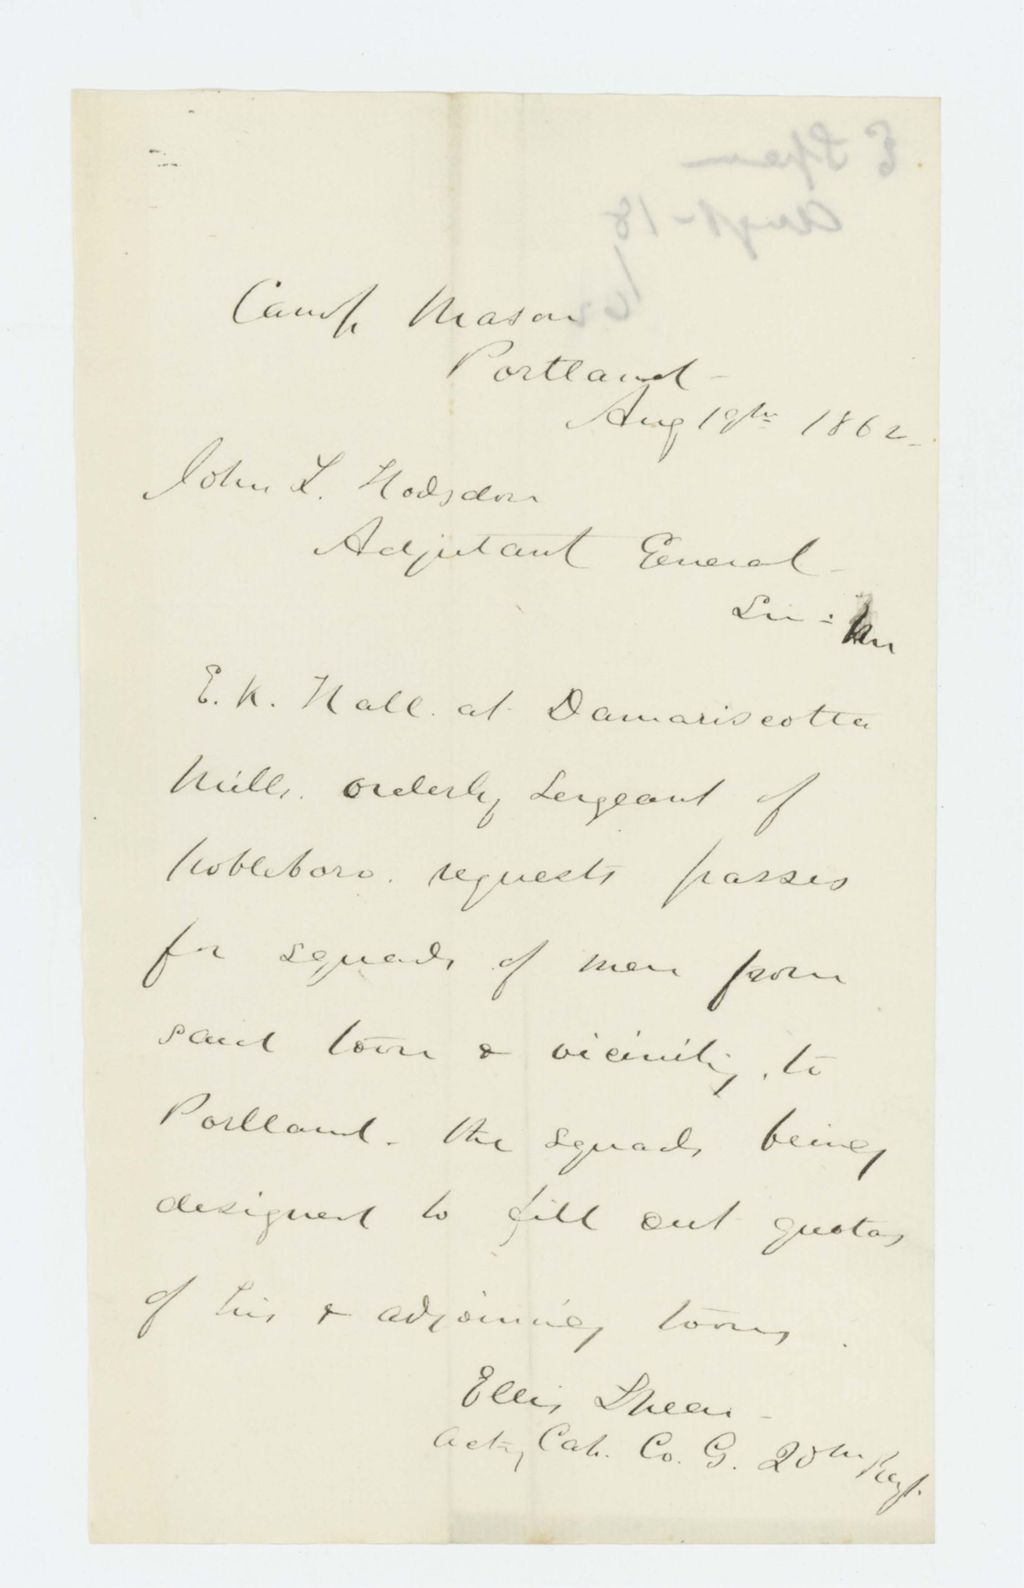 Camp Mason
Portland -
Aug 19th 1862
John L. Hodsdon
Adjutant General -
Sir :
E. K. Hall. at Damariscotta
Mills. orderly Sergeant of
Nobleboro. requests passes
for squads of men from
said town & vicinity, to
Portland - the squads being
designed to fill out quotas
of his & adjoining towns.
Ellis Spear -
Actg Capt. Co. G. 20th Regt.
E Spear
Aug 18